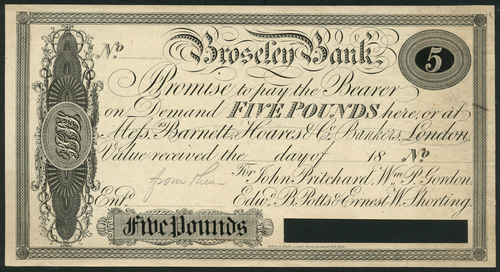 No Broseley Bank. 5
I Promise to pay the Bearer
on Demand FIVE POUNDS here, or at
Messrs. Barnett, Hoares & Co. Bankers, London,
Value received the day of 18 No
from this
For John Pritchard, Wm. P. Gordon,
Entd. Edwd. B. Potts & Ernest W. Shorting.
Five Pounds